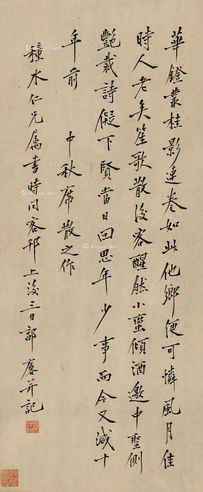 華鐙叢桂影連蜷如此他鄉便可憐風月佳
時人老矣笙歌散後客醒然小蠻傾酒邀中聖側
艷裁詩儗下賢當日回思年少事而今又減十
年前 中秋席散之作
穜水仁兄屬書時同客邗上後三日郭麐并記